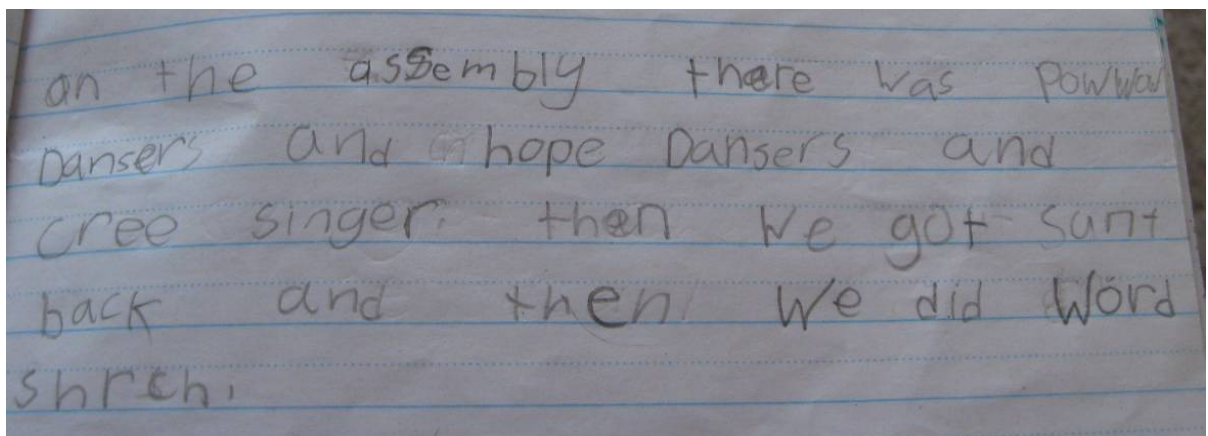 on the assembly there was powwow
Dansers and hope Dansers and
cree singer. then we got sunt
back and then we did Word
shrch.